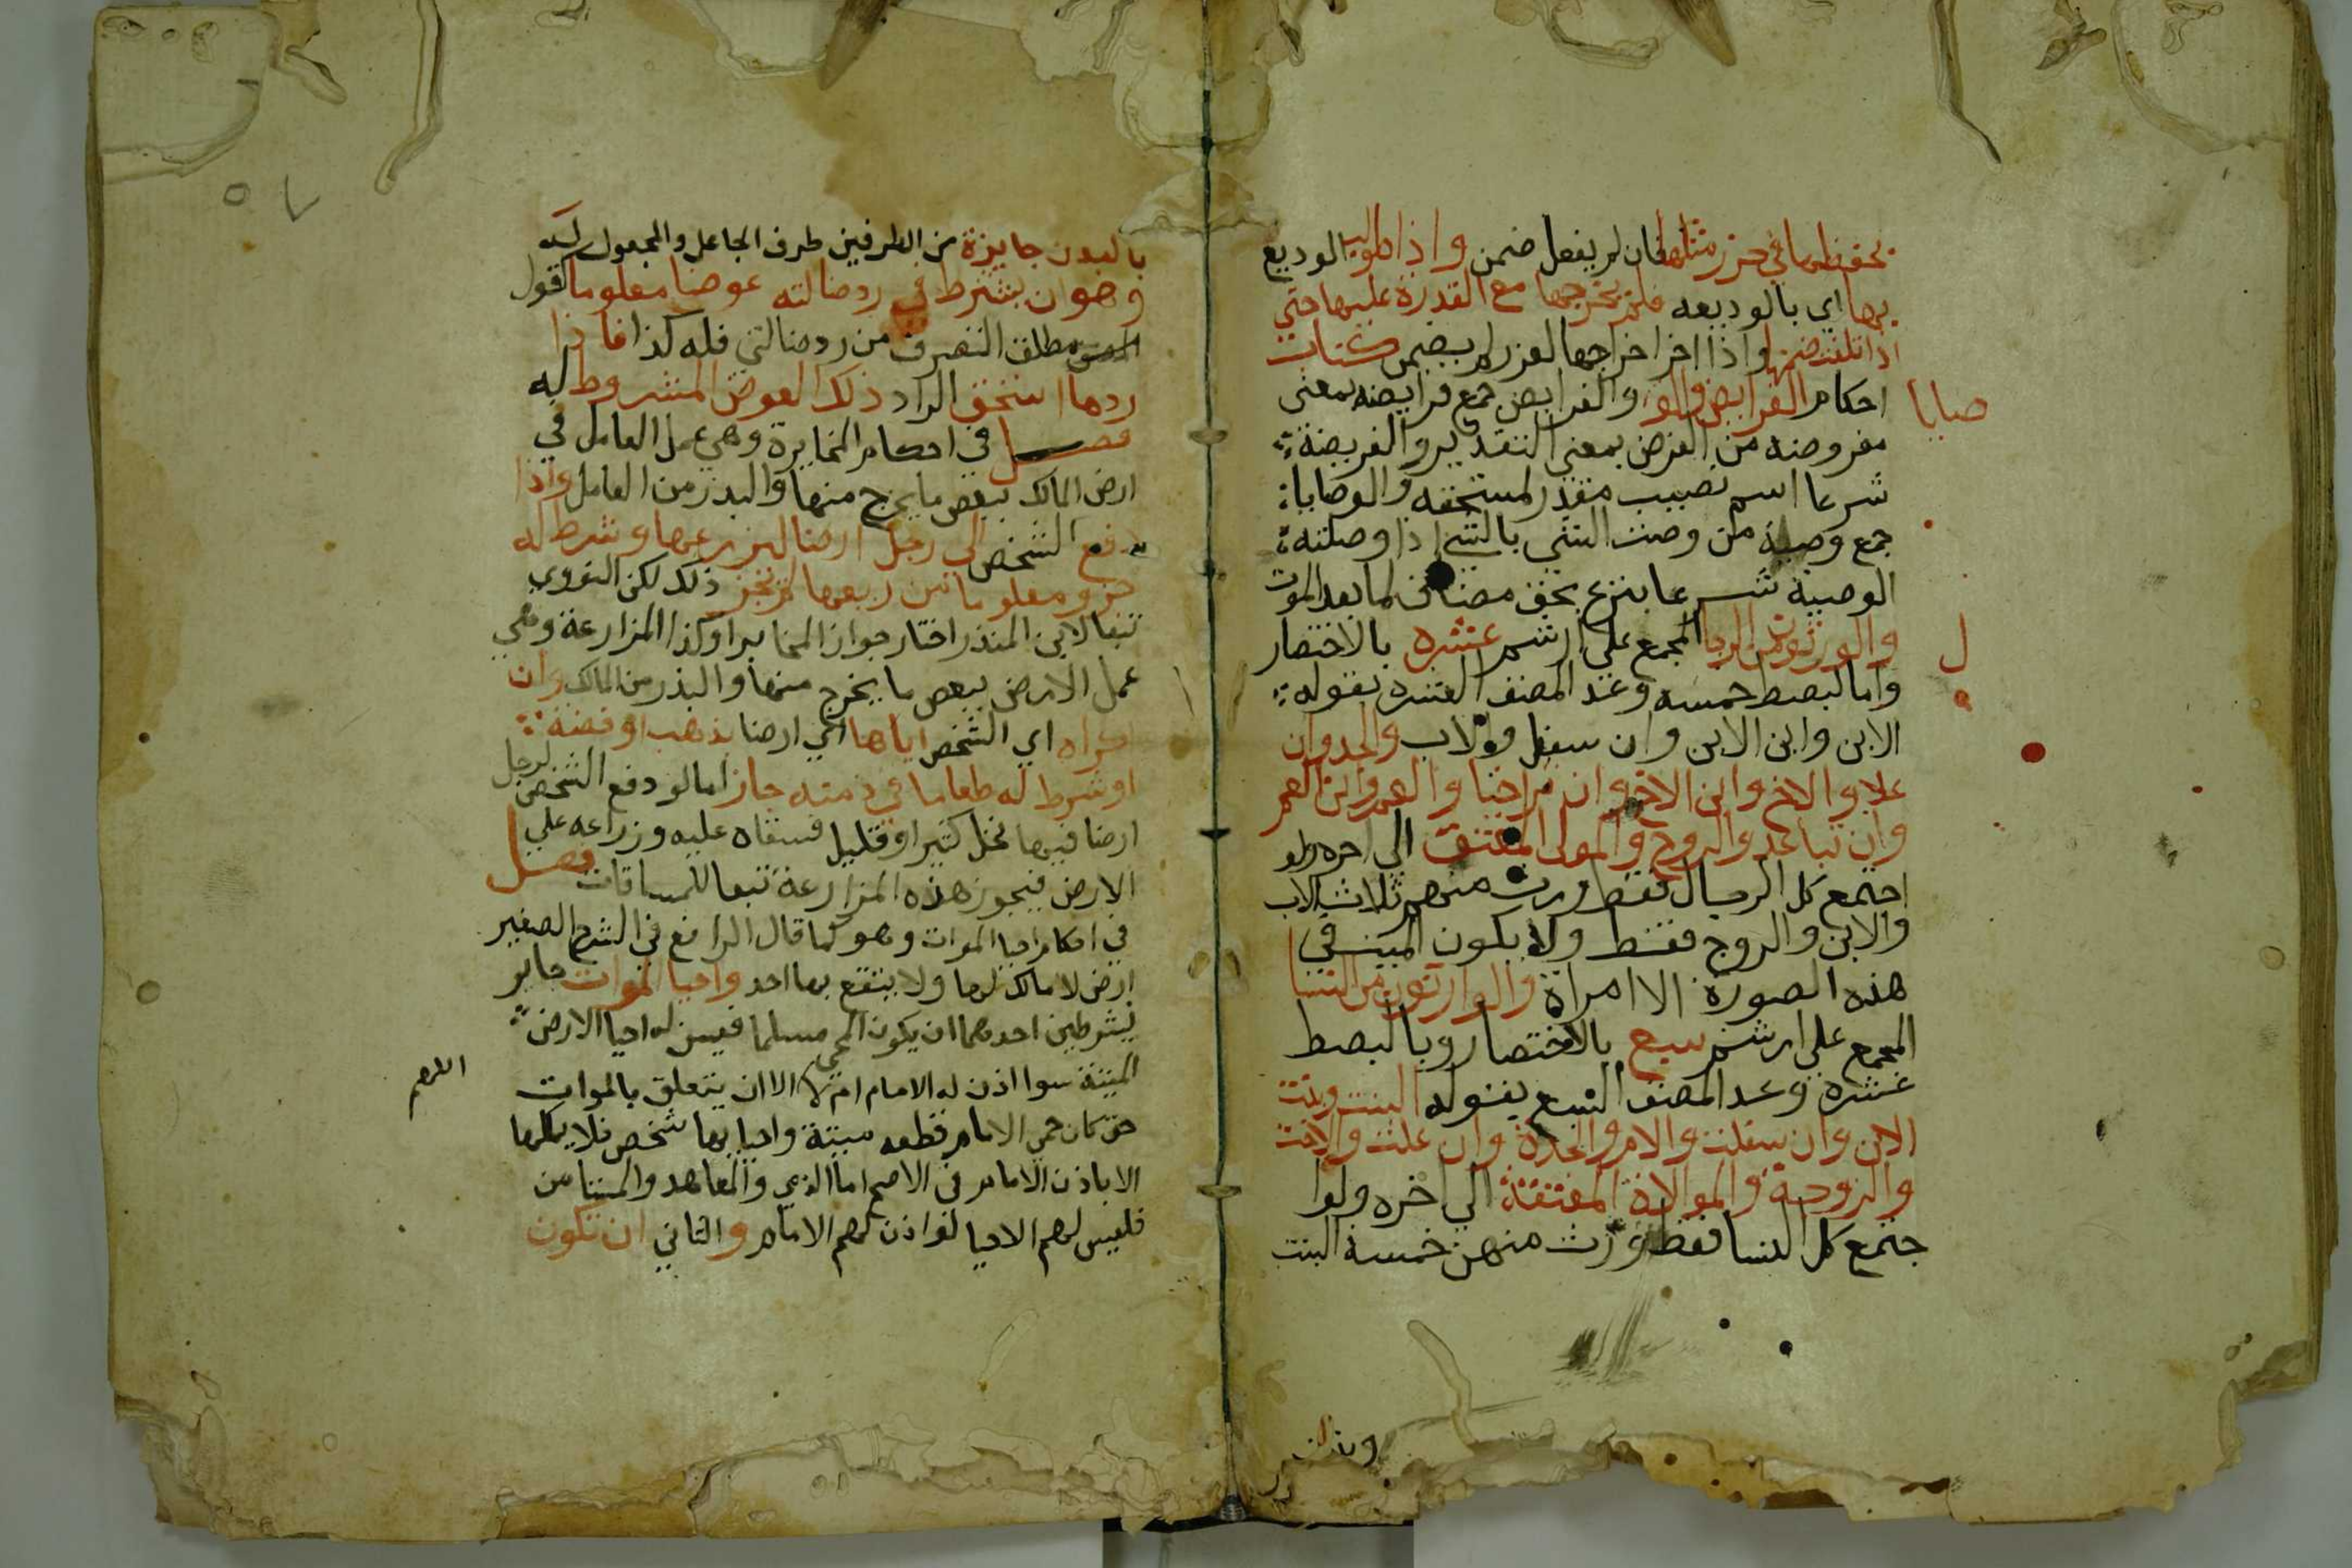 يحفظها في حرز مثلها فان لم يفعل ضمن واذا طولب الوديع
بها اي بالوديعه فلم يخرجها مع القدرة عليها حتي
اذا تلفت ضمنها واذا اخر اخراجها لعزر لم يضمن كتاب
احكام الفرايض والو والفرايض جمع فرايضه بمعني
صايا
مفروضه من الفرض بمعني التقدير والفريضة
شرعا اسم نصيب مقدر لمستحقه والوصايا
جمع وصية من وصت الشي بالشي اذا وصلته
الوصية شرعا بتبرع بحق مضاف لما بعد الموت
والورثون من الرجا المجمع علي ارثهم عشره بالاختصار
ل
واما البصط خمسه وعد المصنف العشره بقوله
الابن وابن الابن وان سفل والاب والجد وان
علا والاخ وابن الاخ وان تراخيا والعم وابن العم
وان تباعد والزوج والمولى المعتق الي اخره ولو
اجتمع كل الرجال فقط ورث منهم ثلاث الاب
والابن والزوج فقط ولا يكون الميت في
هذه الصورة الا امراة والوارثون من النسا
المجمع علي ارثهم سبع بالاختصار وبالبصط
عشره وعد المصنف السبع بقوله البنت وبنت
الابن وان سفلت والام والجدة وان علت والاخت
والزوجة والمولاة المعتقة الي اخره ولوا
جتمع كل النسا فقط ورث منهن خمسة البنت
وبنت
بالبدن جايزة من الطرفين طرف الجاعل والمجعول له
وهو ان يشترط في رد ضالته عوضا معلوما كقول
مطلق التصرف من رد ضالتي فله كذا فاذا
ردها استحق الراد ذلك العوض المشروط له
فصل في احكام المخابرة وهي عمل العامل في
ارض المالك ببعض ما يخرج منها والبذر من العامل واذا
دفع الشخص الي رجل ارضا ليزرعها وشرط له
جزو معلوما من ريعها لم يجز ذلك لكن النووي
تبعا لابن المنذر اختار جواز المخابرا وكذا المزارعة وهي
عمل الارض ببعض ما يخرج منها والبذر من المالك وان
اكراه اي الشخص اياها اي ارضا بذهب او فضة
او شرط له طعاما في ذمته جاز اما لو دفع الشخص لرجل
ارضا فيها نخل كثير او قليل فسقاه عليه وزراعه علي
الارض فيجوز هذه المزارعة تبعا للمساقات فصل
في احكام احيا الموات وهو كما قال الرافع في الشرح الصغير
ارض لا مالك لها ولا ينتفع بها احد واحيا الموات جايز
بشرطين احدهما ان يكون المحي مسلما فيسن له احيا الارض
الميتة سوا اذن له الامام ام لا الا ان يتعلق بالموات
اللهم
حق كان حمي الامام قطعه ميتة واحيا بها شخص فلا يملكها
الا باذن الامام في الاصح اما الذمي والمعاهد والمستامن
فليس لهم الاحيا لو اذن لهم الامام والثاني ان تكون